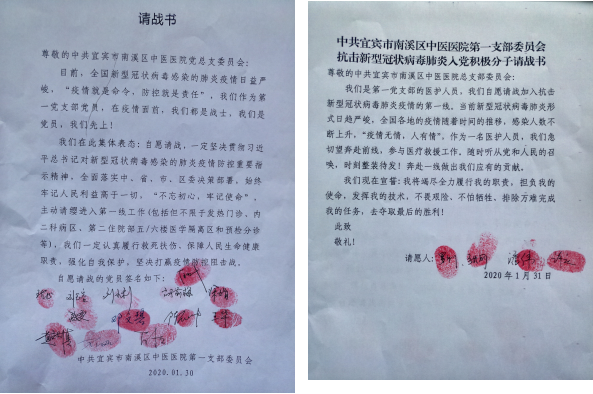 请战书
尊敬的中共宜宾市南溪区中医医院党总支委员会：
目前，全国新型冠状病毒感染的肺炎疫情日益严
峻，“疫情就是命令、防控就是责任”，我们作为第
一党支部党员，在疫情面前，我们都是战士，我们是
党员，我们先上！
我们在此集体表态：自愿请战，一定坚决贯彻习近
平总书记对新型冠状病毒感染的肺炎疫情防控重要指
示精神，全面落实中、省、市、区委决策部署，始终
牢记人民利益高于一切，“不忘初心、牢记使命”，
主动请缨进入第一线工作(包括但不限于发热门诊、内
二科病区、第二住院部五/六楼医学隔离区和预检分诊
等)，我们一定认真履行救死扶伤、保障人民生命健康
职责，强化自我保护，坚决打赢疫情防控阻击战。
自愿请战的党员签名如下：
中共宜宾市南溪区中医医院第一支部委员会
2020.01.30
中共宜宾市南溪区中医医院第一支部委员会
抗击新型冠状病毒肺炎入党积极分子请战书
尊敬的中共宜宾市南溪区中医医院第一支部委员会：
我们是第一党支部的医护人员，我们自愿加入抗击
新型冠状病毒肺炎疫情的第一线。当前新型冠状病毒肺炎形
式日趋严峻，全国各地的疫情随着时间的推移，感染人数不
断上升，“疫情无情，人有情”，作为一名医护人员，我们急
切望奔赴前线，参与医疗救援工作，随时听从党和人民的召
唤，时刻整装待发！奔赴一线做出我们应有的贡献。
我们现在宣誓：我将竭尽全力履行我的职责，担负我的
使命，发挥我的技术，不畏艰险、不怕牺牲、排除万难完成
我的任务，去夺取最后的胜利！
此致
敬礼！
请愿人：
2020 年 1 月 31 日